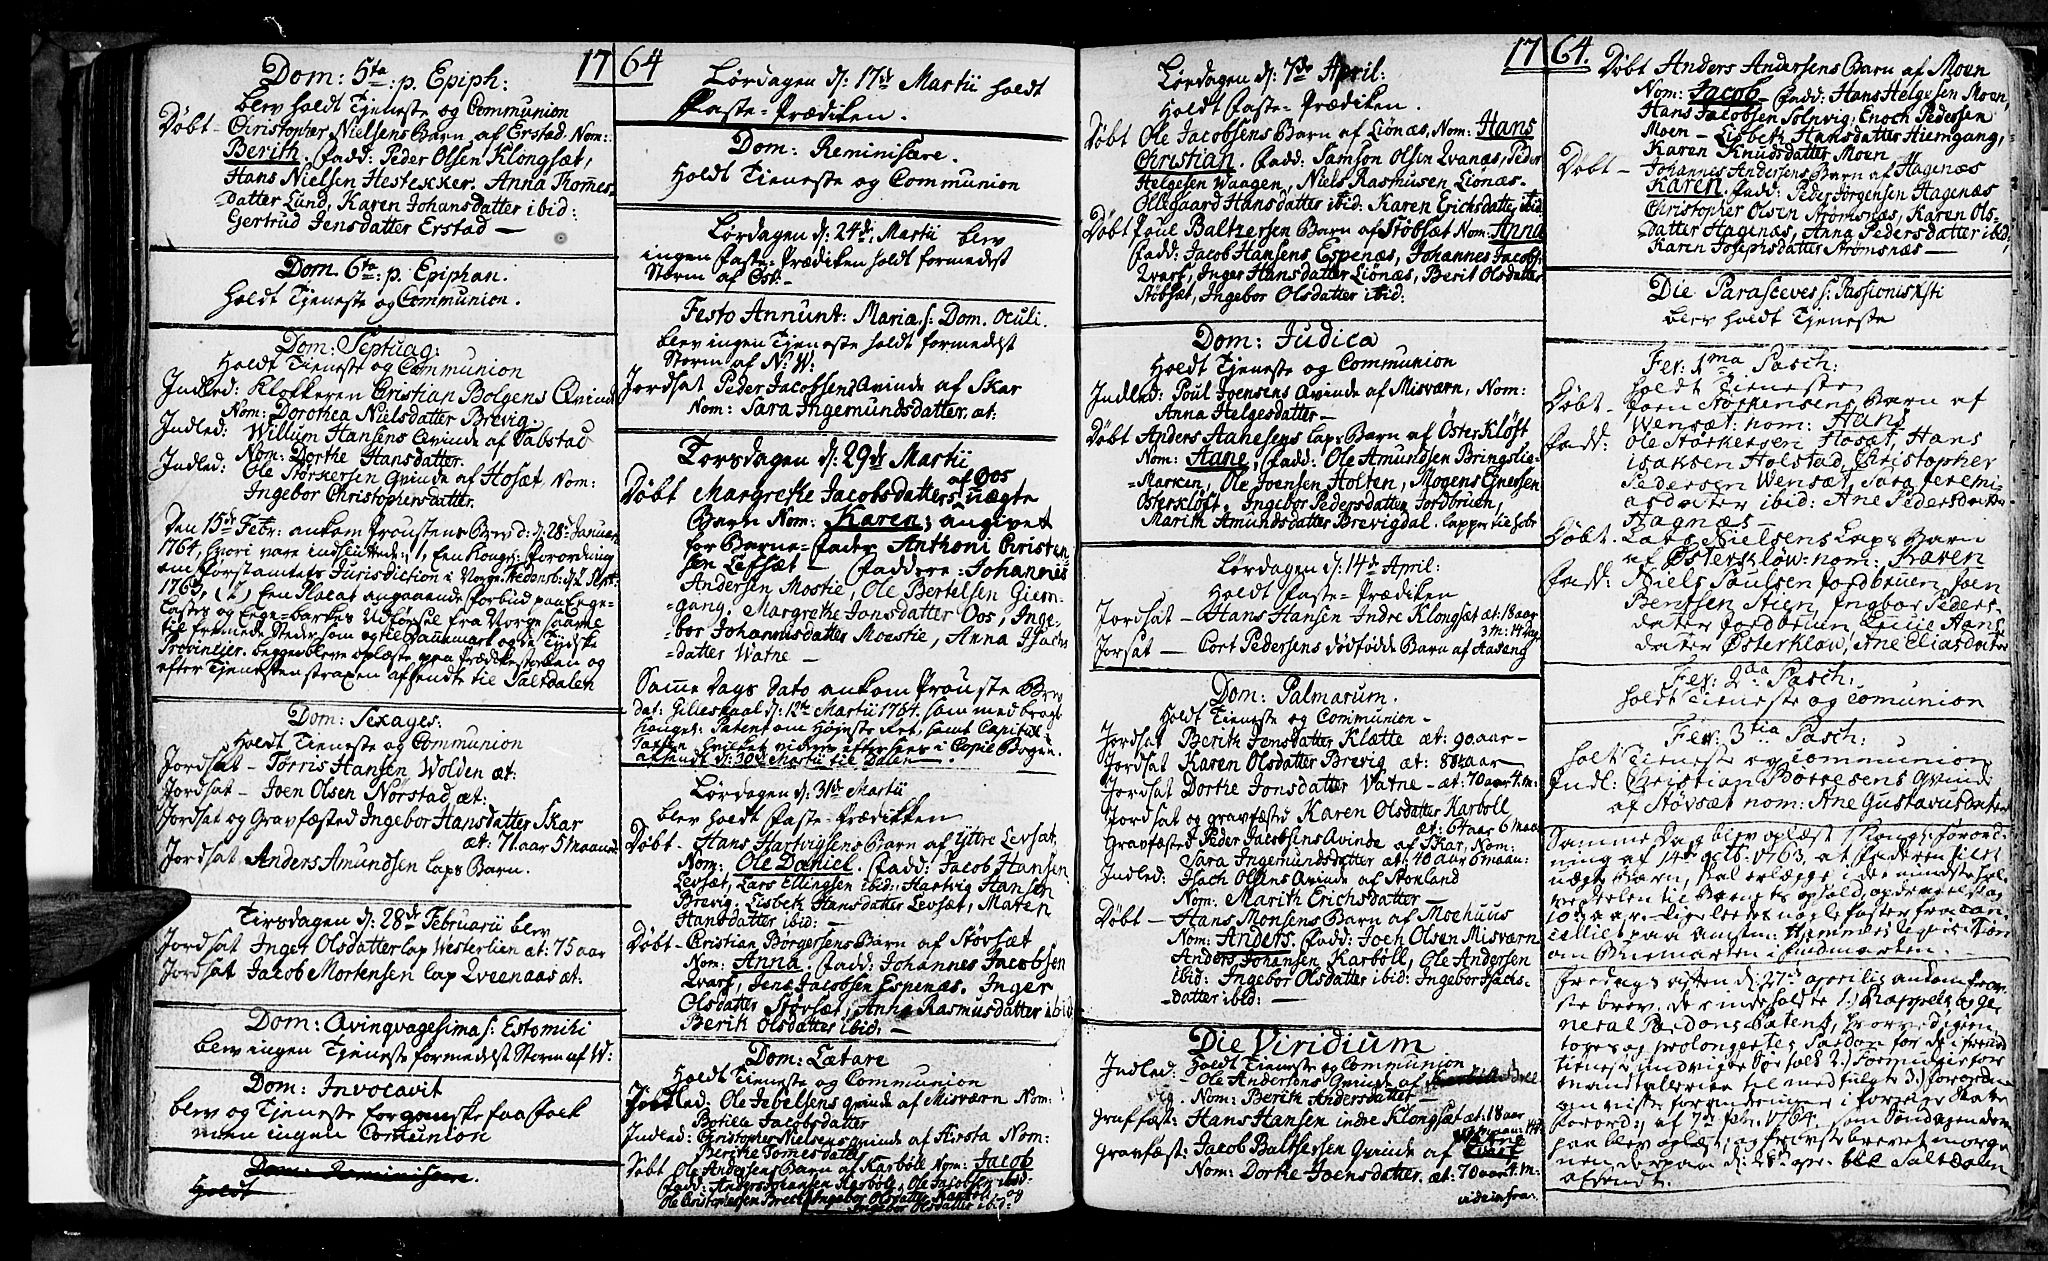 1764
Dom: 5ta p. Epiph:
blev holdt Tjeneste og Communion
Døbt - Christopher Nielsens Barn af Erstad. Nom:
Berith. Fadd: Peder Olsen Klongsæt,
Hans Nielsen Hestekker. Anna Thommes
datter Lund, Karen Johansdatter ibid:
Gertrud Jensdatter Erstad —
Dom. 6ta p. Epiphan.
holdt Tjeneste og Communion.
Dom: Septuag:
Holdt Tjeneste og Communion
Indled: Klokkeren Christian Bolgens Qvinde
Nom: Dorothea Nielsdatter Brevig.
Indled: Willum Hansens Qvinde af Tabstad
Nom: Dorthe Hansdatter.
Indled: Ole Storkersen Qvinde af Hosæt, Nom:
Ingebor Christophersdatter.
Den 15de Febr: ankom Proustens Brev d: d: 28de Januarii
1764, hvori vare indsluttede: 1, En Kongl: Forordning
om Forstamtets Jurisdiction i Norge
1763, (2) En Placat angaaende Forbud paa Ege-
Castes og Ege-barkes Udførsel fra Norge saavel
til fremmede Steder som og til Dannemark og de Tydske
Provincier. begge bleve oplæste paa Prædikestolen og
efter Tjenesten straxen affendte til Saltdalen
Dom: Sexages:
Holdt Tieneste og Communion
Jordsat - Torris Hansen Wolden æt:
Jordsat - Joen Olsen Norstad æt:
Jordsat og Gravfæsted Ingebor Hansdatter Skar
æt: 71 aar 5 maaned
Jordsat Anders Amundsen laps Barn.
Tirsdagen d: 28de Februarii blev
Jordsat Inger Olsdatter lap Westerlien æt: 75 aar
Jordsat Jacob Mortensen lap Qveenaas æt:
Dom: Qvinqvagesima s: Estomihi
blev ingen Tjeneste formedelst Storm af W:
Dom: Invocavit
blev og Tjeneste for ganske faa Folk
men ingen Com̄union
Dom: Reminiscere.
Holdt
Lørdagen d: 17de Martii holdt
Faste-Prædiken.
Dom: Reminiscere.
Holdt Tieneste og Communion
Lørdagen d: 24de Martii blev
ingen Faste-Prædiken holdt formedelst
Storm af Ost.-
Festo Annunt: Mariæ s: Dom. Oculi.
blev ingen Tjeneste holdt formedelst
Storm af N: W:
Jordsat Peder Jacobsens Qvinde af Skar
Nom: Sara Ingemundsdatter. æt:
Torsdagen d: 29de Martii
Døbt Margrethe Jacobsdatters af Oos uægte
Barn Nom: Karen; angivet
for Barne-Fader Anthoni Christen
sen Lefsæt — Faddere: Johannes
Andersen Mostie, Ole Bertelsen Giem-
gang, Margrethe Jonsdatter Oos, Inge-
bor Johannisdatter Moestie, Anna Isachs
datter Watne —
Samme Dags Dato ankom Prouste Brev
dat: Gilleskaal d: 12te Martii 1764. som medbragt
Konges Patent om Højeste Ret, samt Capitel-
Taxten hvilket vidre eftersees i Copie Bogen.
afsendt d: 30de Martii til Dalen.
Lørdagen d: 31de Martii
blev holdt Faste-Prædikken
Døbt - Hans Hartvigsens Barn af Yttre Levsæt,
Nom: Ole Daniel. Fadd: Jacob Hansen
Levsæt, Lars Ellingsen ibid: Hartvig Hansen
Brevig. Lisbeth Hansdatter Levsæt, Maren
Hansdatter ibid: —
Døbt - Christian Borgersens Barn af Støvsæt
Nom: Anna. Fadd: Johannes Jacobsen
Qvarf, Jens Jacobsen Espenæs. Inger
Olsdatter Støvsæt, Anna Rasmusdatter ibid
Berith Olsdatter ibid: —
Dom: Lætare
Holdt Tjeneste og Communion
Indled: Ole Jebelsens Qvinde af Misværn Nom:
Botille Jacobsdatter
Indled: Christopher Nielsens Qvinde af Hersta Nom:
Berithe Tomesdatter
Døbt Ole Andersens Barn af Karbøll Nom: Jacob
Fadd: Anders Johansen Karbøll, Ole Jacobsen ibid:
Ole Christophersen Ingebor Olsdatter Karbøll og
Ingebor Olsdatter ibid:
1764.
Lørdagen d: 7de April:
Holdt Faste-Prædiken.
Døbt Ole Jacobsens Barn af Liønæs, Nom: Hans
Christian. Fadd: Samson Olsen Qvanæs, Peder
Helgesen Waagen, Niels Rasmusen Liønæs.
Ollegaard Hansdatter ibid: Karen Erichsdatter ibid
Døbt Poul Baltzersen Barn af Støbsæt Nom: Anna
Fadd: Jacob Hansens Espenæs, Johannes Jacobs:
Qvarf, Inger Hansdatter Liønæs, Berit Olsdatter
Støbsæt, Ingebor Olsdatter ibid:
Dom: Judica
Holdt Tjeneste og Communion
Indled: Poul Joensens Qvinde af Misværn, Nom:
Anna Helgesdatter —
Døbt Anders Aanesens laps Barn af Österkløft
Nom: Aane, Fadd: Ole Amundsen Bringslie-
Marken, Ole Joensen Holten, Mogens Ejnersen
Österkløft, Ingebor Pedersdatter Jordbruen,
Marith Amundsdatter Brevigdal. lapper tilhobe
Lørdagen d: 14de April:
Holdt Faste-Prædiken
Jordsat - Hans Hansen Indre Klongsæt æt: 18 aar
3 m: 14 dag
Jorsat — Cort Pedersens dødfødde Barn af Aaseng
Dom: Palmarum.
Holdt Tieneste og Communion -
Jordsat Berith Jensdatter Klætte æt: 90 aar -
Jordsat Karen Olsdatter Brevig æt: 88 aar
Jordsat Dorthe Jonsdatter Vatne - æt: 70 aar 4 m:
Jordsat og gravfæsted Karen Olsdatter Karbøll
æt: 64 aar 6 maan
Gravfæsted Peder Jacobsens Qvinde af Skar, Nom:
Sara Ingemundsdatter æt: 40 aar 6 maan:
Indled: Isach Olsens Qvinde af Stonland
Nom: Marith Erichsdatter —
Døbt - Hans Monsens Barn af Mochuus
Nom: Anders. Fadd: Joen Olsen Misværn
Anders Johansen Karbøll, Ole Andersen
ibid: Ingebor Olsdatter ibid: Ingebor Isachs-
datter ibid: —
Die Viridium
Holdt Tieneste og Communion
Indled: - Ole Andersens Qvinde af Bre
vig. Nom: Berith Andersdatter —
Graffæst: Hans Hansen indre Klongsæt æt: 18 aar
Gravfæst: Jacob Balthersen Qvinde af Watne
Nom: Dorthe Joensdatter. æt: 70 aar 4 m:
vide infra:
Døbt Anders Andersens Barn af Moen
Nom: Jacob Fadd: Hans Helgesen Moen,
Hans Jacobsen Solnvig, Enoch Pedersen
Moen - Lisbeth Hansdatter Hiemgang,
Karen Knudsdatter Moen
Døbt - Johannes Andersens Barn af Hagenæs
Karen. Fadd: Peder Jörgensen Hagenæs
Christopher Olsen Strømsnæs, Karen Ols-
datter Hagenæs, Anna Pedersdatter ibid,
Karen Josephsdatter Strømsnæs —
Die Parasceves s: Passionis Xsti
blev holdt Tjeneste
Fer: 1ma Pasch:
holdt Tieneste
Døbt - Jorn Storkersens Barn af
Wensæt nom: Hans
Fadd: Ole Storkersen Hosæt, Hans
isaksen Holstad, Christopher
Pedersen Wensæt, Sara Jeremi-
asdatter ibid: Ane Pedersdatter
Hagnæs —
Døbt. Lars Nielsens Laps Barn
af Østerkløw. nom: Karen
Fadd: Niels Poulsen Jordbruen, Joen
Bentsen Stien, Ingbor Peders-
dater Jordbruen Cicilie Hans
dater Østerkløw, Ane Eliasdater
Fer: 2da Pasch:
holdt Tieneste og Comunion
Fer: 3tia Pasch:
holt Tieneste og Communion
Indl: Christian Borresens Qvinde
af Støvsæt nom: Ane Gustavusdater
Samme Dag blev oplæst Kongl: forord-
ning af 14de octb: 1763, at Faderen til et
uægte Børn, skal erlægge i det mindste hal-
vedelen til Barnets ophold, op dends alder
10 Aar. ligeledes nogle Poster fra Can-
celliet paa
om Biemarken i Findmarken
Fredags aften d: 27de aprilis ankom Prov-
ste brev, der indeholdte 1.) Kappels og Ge
neral Pardons Patent, hvorved igien
toges og prolongertes Pardon for de i fremd
Tieneste undvigte Søefolk 2.)
mandtallerne til med følgte 3.) Forordn:
om visse forandringer i forrige Skatte
Forord: af 7de febr. 1764. som Søndagen der
paa blev oplæst, og Provste brevet morge
nen derpaa d: 28de apr. til Saltdalen
afsendt.